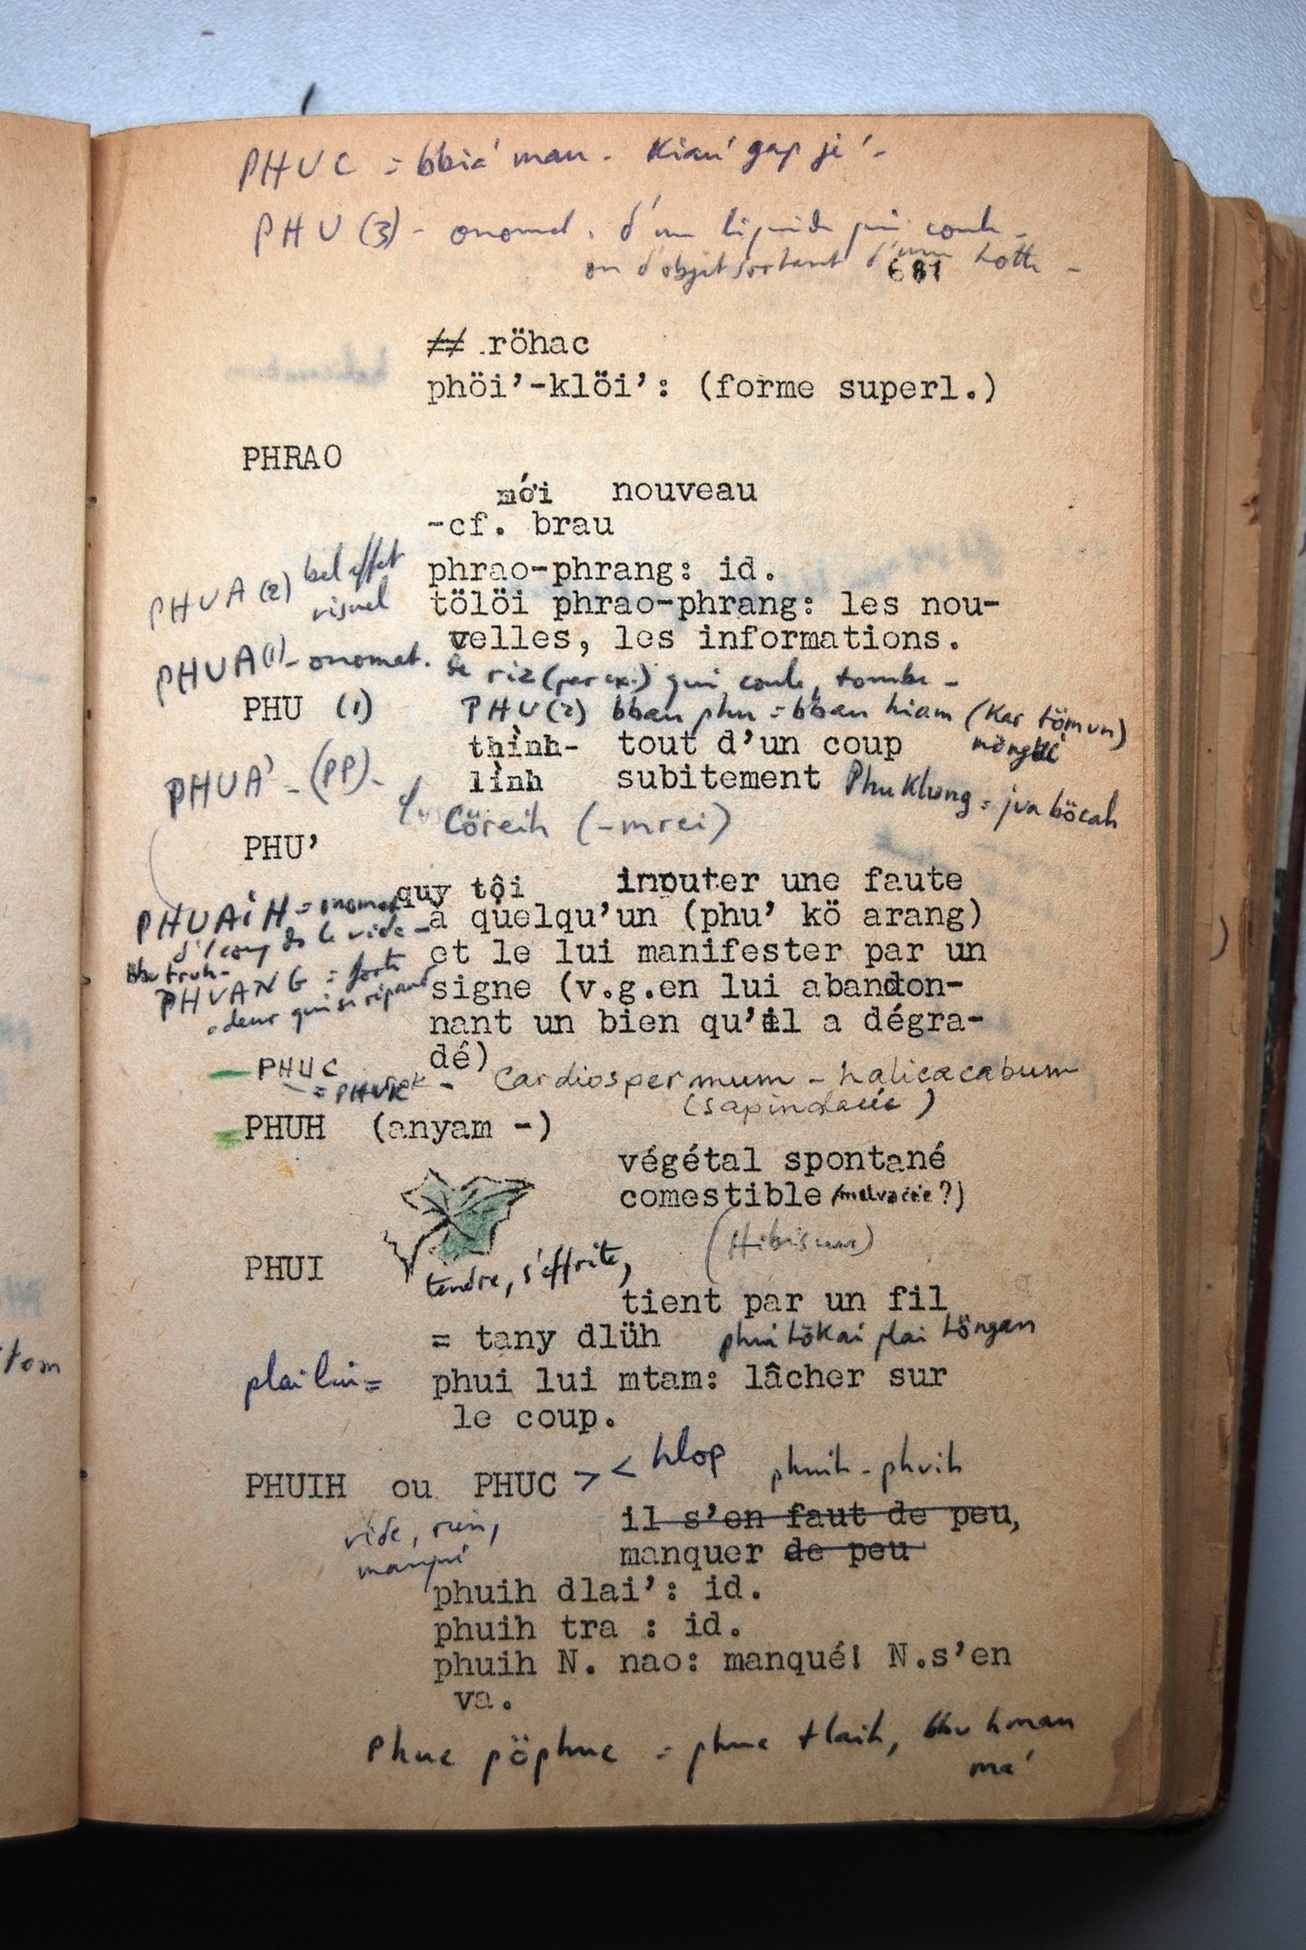 PHUC = bbia' man - Kian' gap je' -
PHU (3) - onomat. d'un liquide qui coule -
ou d'objet sortant d'une hotte -
681
≠ röhac
phöi'-klöi': (forme superl.)
PHRAO
mới nouveau
-cf. brau
PHUA (2) bel effet
visuel
phrao-phrang: id.
tölöi phrao-phrang: les nou-
velles, les informations.
PHUA (1) - onomat. de riz (par ex.) qui coule, tombe -
PHU (1) PHU (2) bban phu = bban hiam (Kar tömun)
thình- tout d'un coup
lình subitement Phu Khong = jua böcah
PHUA' - (PP) -
Cöreih (-mrei)
PHU'
quy tội imputer une faute
à quelqu'un (phu' kö arang)
et le lui manifester par un
signe (v.g.en lui abandon-
nant un bien qu'il a dégra-
dé)
PHUAIH = onomat
d'1 coup ds le vide -
PHUANG = forte
odeur qui se répand
PHUC - Cardiospermum - halicacabum
= PHUK (sapindacée)
PHUH (anyam -)
végétal spontané
comestible (malvacée ?)
(Hibiscus)
PHUI tendre, s'effrite,
tient par un fil
= tany dlüh phui tökai plai töngan
plai lui = phui lui mtam: lâcher sur
le coup.
PHUIH ou PHUC > < hlop phuih - phuih
vide, rien,
manqué
il s'en faut de peu,
manquer de peu
phuih dlai': id.
phuih tra : id.
phuih N. nao: manqué! N.s'en
va.
Phuc pöphuc = phuc tlaih, bbu hman
ma'
tom